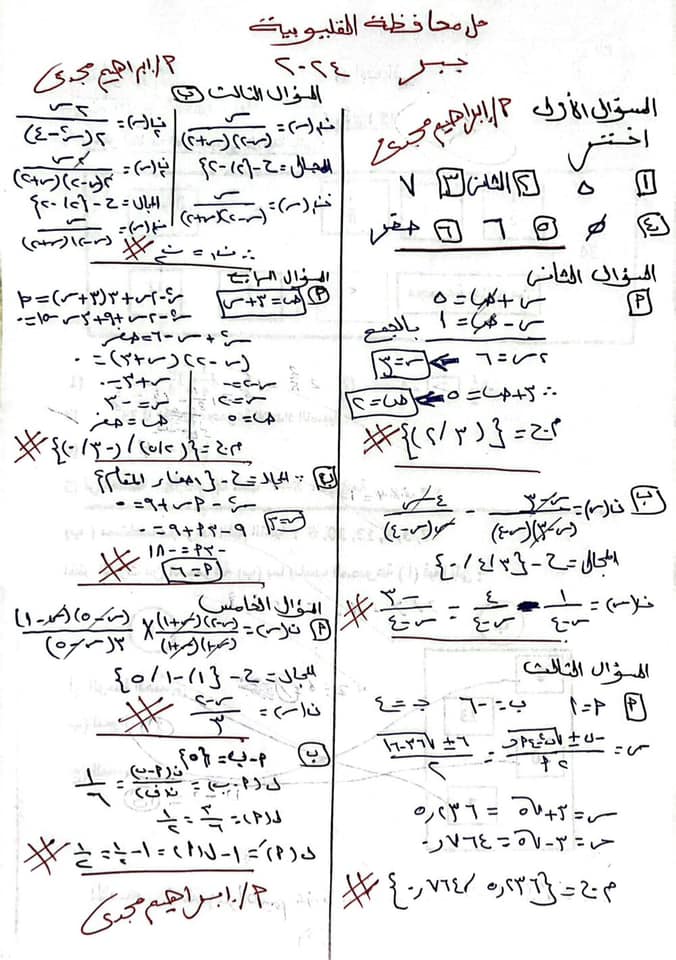 حل محافظة القليوبية
جبر ٢٠٢٤ م/ابراهيم مجدى
السؤال الأول م/ابراهيم مجدى
اختر
١ ٥ ٢ الثانى ٣ ٧
٤ ∅ ٥ ٦ ٦ صفر
السؤال الثانى
٢م
س + ص = ٥
س - ص = ١ بالجمع
٢س = ٦ ← س = ٣
∴ ٣ + ص = ٥ ← ص = ٢
م.ح = {(٣/٢)} #
ب ن(س) = (س-٣)/((س-٣)(س-٤)) - (٤س)/(س(س-٤))
المجال = ح - {٣/٤/٠}
ن(س) = ١/(س-٤) - ٤/(س-٤) = -٣/(س-٤) #
السؤال الثالث
٢م ٢م = ١ ب = -٦ ج = ٤
س = (-ب ± √(ب٢ - ٤٢مج))/(٢٢م) = (٦ ± √(٣٦ - ١٦))/٢
س = ٣ + √٥ = ٥,٢٣٦
س = ٣ - √٥ = ٠,٧٦٤
م.ح = {٥,٢٣٦ / ٠,٧٦٤} #
السؤال الثالث ب
ن١(س) = س/((س-٢)(س+٢))
المجال = ح - {٢/-٢}
ن١(س) = س/((س-٢)(س+٢))
ن٢(س) = ٢س/(٢(س٢-٤))
ن٢(س) = ٢س/(٢(س-٢)(س+٢))
المجال = ح - {٢/-٢}
ن٢(س) = س/((س-٢)(س+٢))
∴ ن١ = ن٢ #
السؤال الرابع
٢م ص = س + ٣
س٢ - ٢س + ٣(س+٣) = ١٥
س٢ - ٢س + ٣س + ٩ - ١٥ = ٠
س٢ + س - ٦ = صفر
(س - ٢)(س + ٣) = ٠
س - ٢ = ٠ س + ٣ = ٠
س = ٢ س = -٣
ص = ٥ ص = صفر
م.ح = {(٢/٥) / (-٣/٠)} #
ب ∵ المجال = ح - {اصفار المقام}
س٢ - م س + ٩ = ٠
س = ٣ ٩ - ٣م + ٩ = ٠
-٣م = -١٨
م = ٦ #
السؤال الخامس
٢م ن(س) = ((س-٢)(س+١))/((س-١)(س+١)) × ((س-٥)(س-١))/(٣(س-٥))
المجال = ح - {١/-١/٥}
ن(س) = (س-٢)/٣ #
ب م - ب = {٥}
ل(م-ب) = ن(م-ب)/ن(ف) = ١/٦
ل(م) = ٣/٦ = ١/٢
ل(م́) = ١ - ل(م) = ١ - ١/٢ = ١/٢ #
م/.ابراهيم مجدى